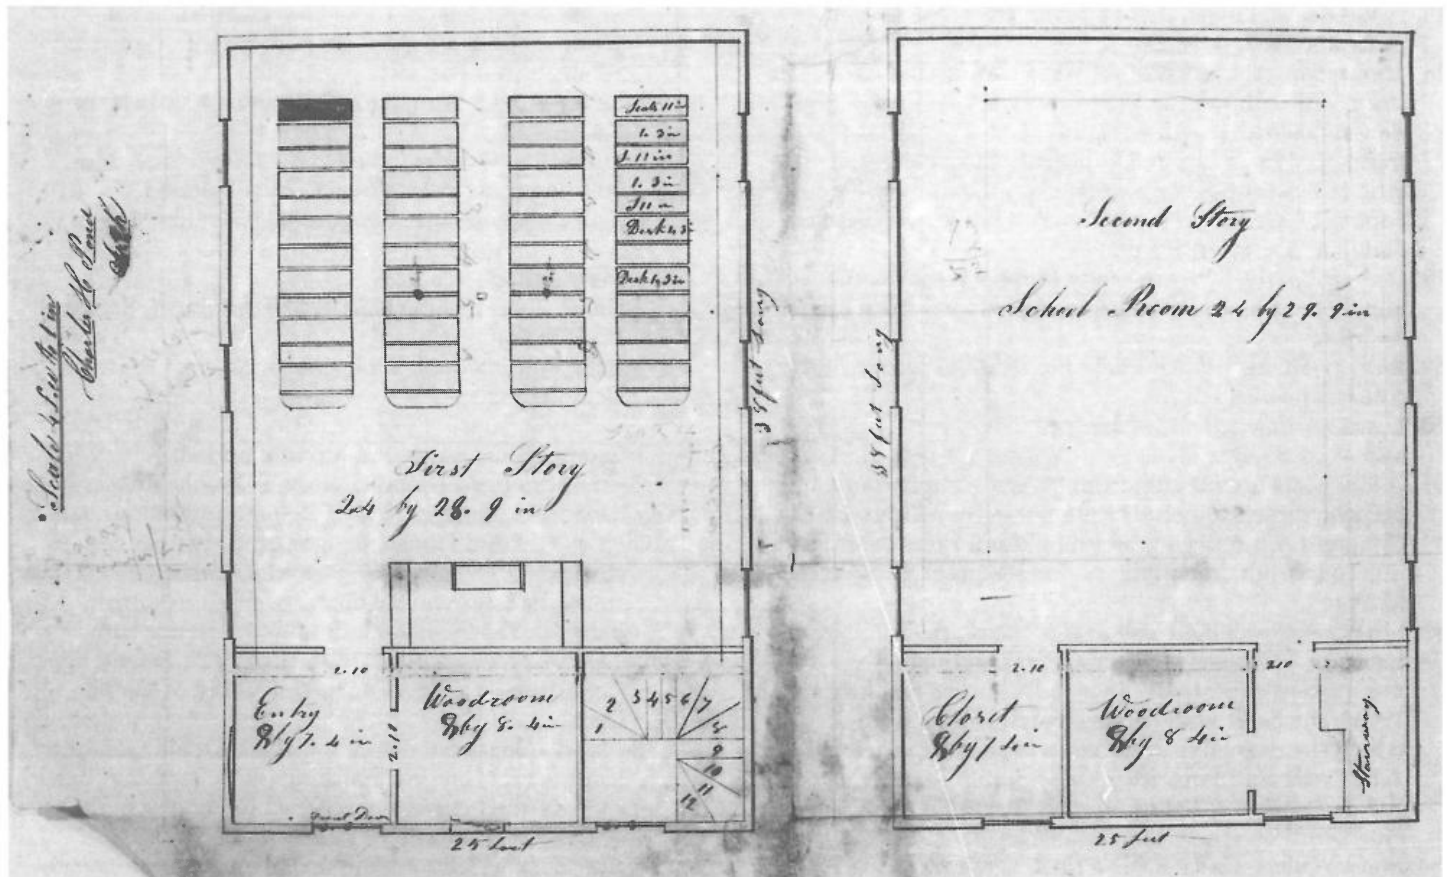 Charles H Pond
Seats 11 in
1. 3 in
S. 11 in
1. 3 in
S 11 in
Desk 1. 3 in
Desk 1. 3 in
First Story
24 by 28. 9 in
38 feet Long
2.10
Entry
8 by 7. 4 in
2.10
Woodroom
8 by 8. 4 in
1
2
3 4 5 6 7
8
9
10
11
12
Front Door
25 feet
Second Story
School Room 24 by 29. 9 in
38 feet Long
2.10
210
Closet
8 by 7 4 in
Woodroom
8 by 8 4 in
Stairway
25 feet